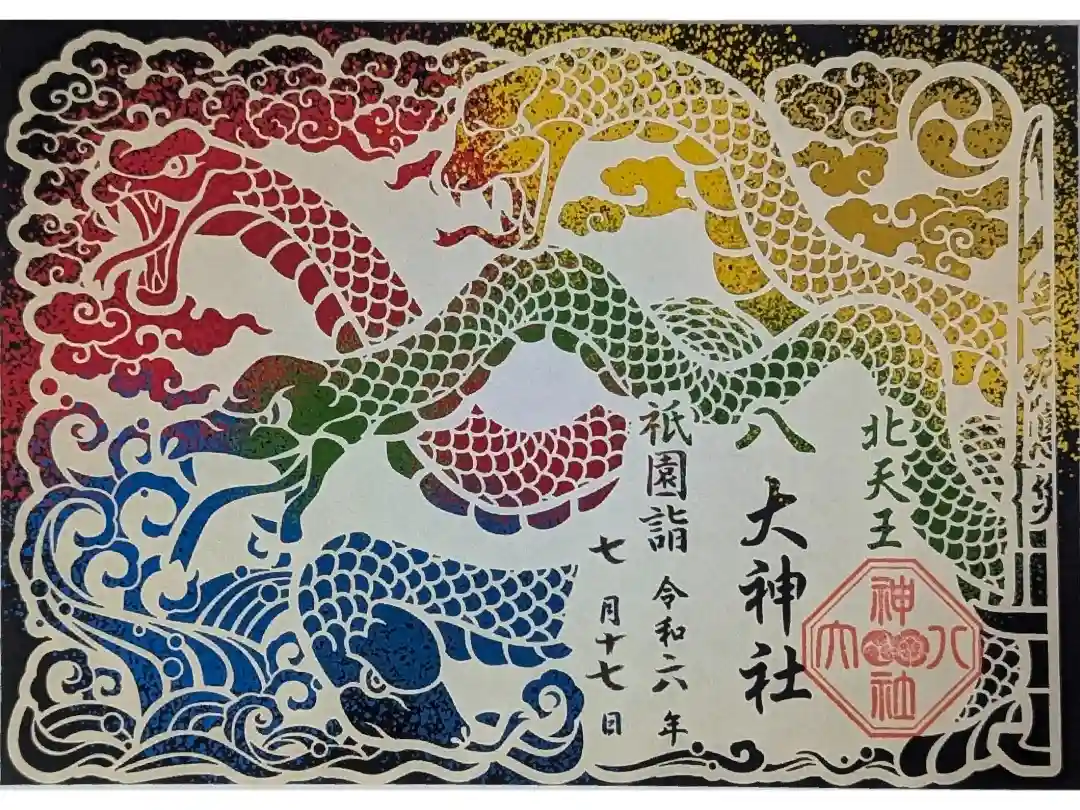 北天王
八大神社
祇園詣 令和六年
七月十七日
八大神社